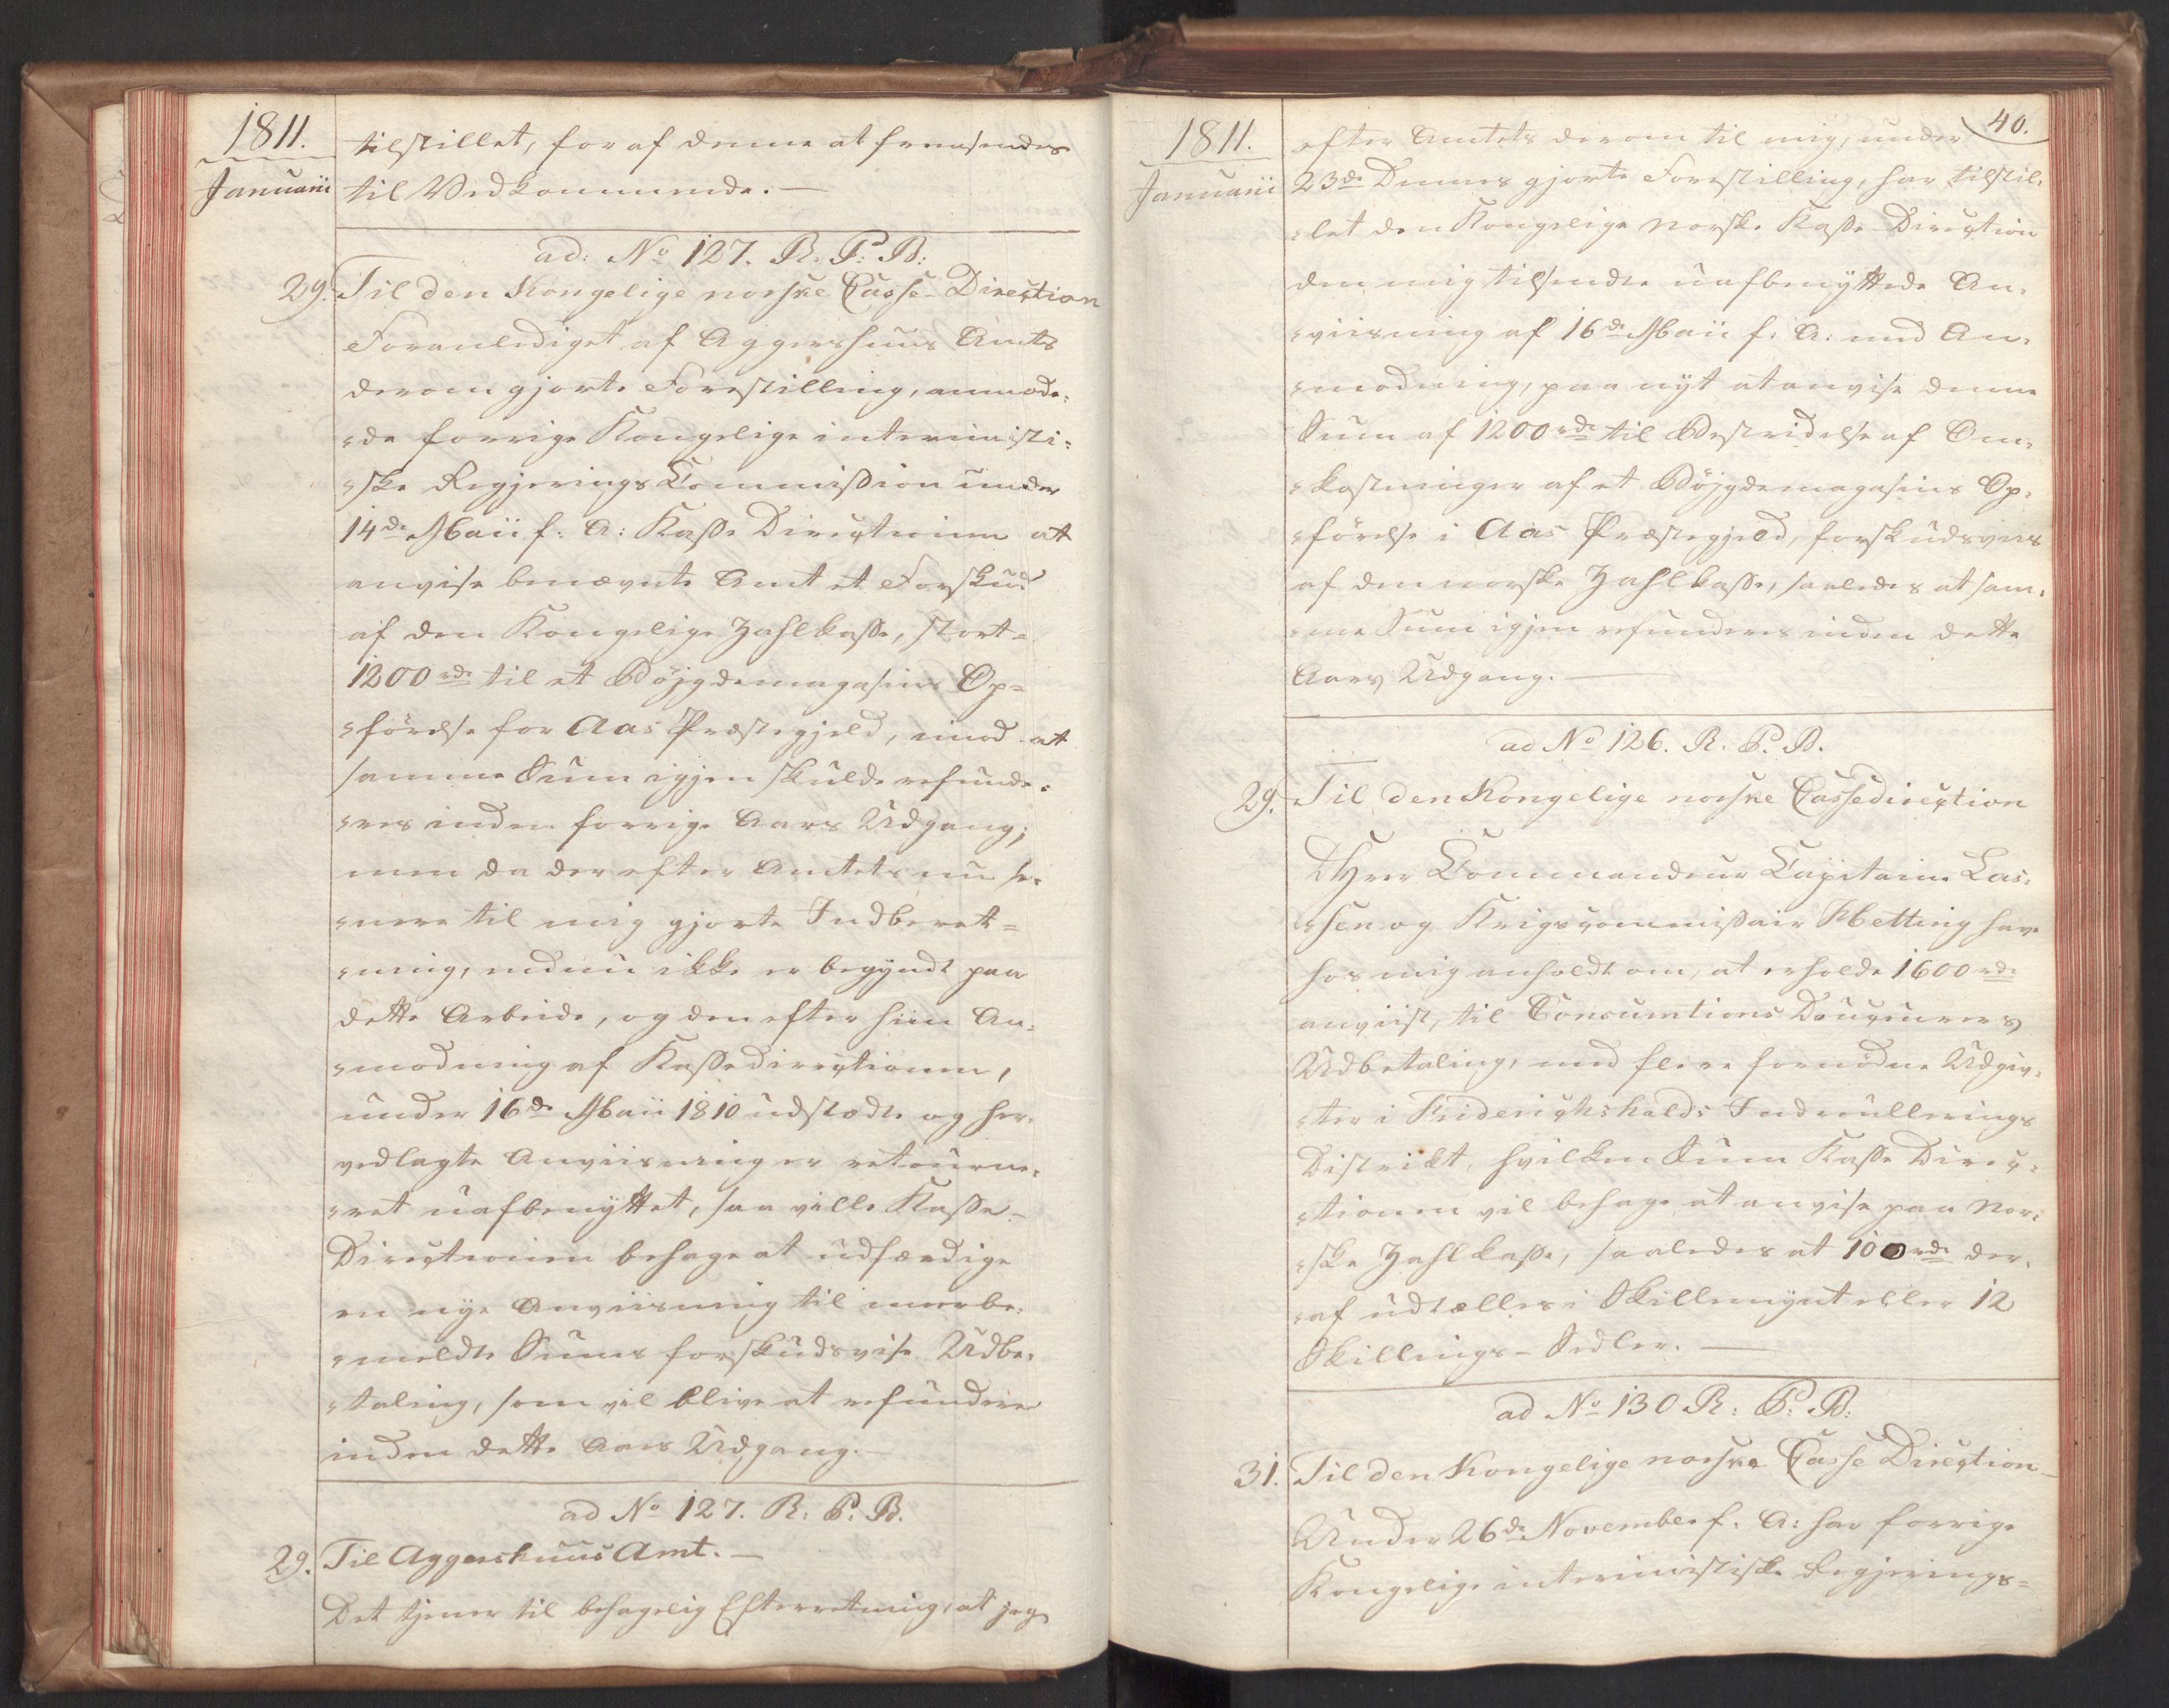 1811.
Januarii
tilstillet, for af denne at fremsendes
til Vedkommende. —
ad: No 127. R. P. B:
29. Til den Kongelige norske Casse-Direction
Foranlediget af Aggershuus Amts
derom gjorte Forestilling, anmode-
-de forrige Kongelige interimisti-
-ske Regjerings Commission under
14de Maii f. A: Kasse Directionen at
anvise benævnte Amt et Forskud
af den Kongelige Zahlkasse, stort
1200 rd. til et Böjgdemagasins Op-
-förelse for Aas Præstegjeld, imod at
samme Sum igjen skulde refunde-
-res inden forrige Aars Udgang;
men da der efter Amtets nu se-
-nere til mig gjorte Indberet-
-ning, endnu ikke er begyndt paa
dette Arbeide, og den efter hiin An-
-modning af Kassedirectionen,
under 16de Maii 1810 udstædte og her-
vedlagte Anviisning er retourne-
-ret uafbenyttet, saa ville Kasse-
Directionen behage at udfærdige
en nye Anviisning til meerbe-
-meldte Sums forskudsvise Udbe-
-taling, som vil blive at refundere
inden dette Aars Udgang. —
ad No 127. R. P. B.
29. Til Aggershuus Amt. —
Det tjener til behagelig Efterretning, at jeg
40.
1811.
Januarii
efter Amtets derom til mig, under
23de Dennes gjorte Forestilling, har tilstil-
-let den Kongelige norske Kasse-Direction
den mig tilsendte uafbenyttede An-
-viisning af 16de Maii f. A: med An-
-modning, paa nyt at anvise denne
Sum af 1200 rd. til Bestridelse af Om-
-kostninger af et Böjgdemagasins Op-
-förelse i Aas Præstegjeld, forskudsviis
af den norske Zahlkasse, saaledes at sam-
-me Sum igjen refunderes inden dette
Aars Udgang. —
ad No 126. R. P. B.
29. Til den Kongelige norske Cassedirection
DHrr Commandeur Capitaine Las-
-sen og Krigscommissair Metting have
hos mig anholdt om, at erholde 1600 rd.
anviist, til Udbetaling, med flere fornödne Udgiv-
-ter i Friderichshalds Indroullerings
Distrikt, hvilken Sum Kasse Direc-
-tionen vil behage at anvise paa Nor-
-ske Zahlkasse, saaledes at 100 rd. der-
-af udtælles i Skillemynt eller 12
Skillings-Sedler. —
ad No 130 R: P. B:
31. Til den Kongelige norske Casse Direction
Under 26de November f. A: har forrige
Kongelige interimistiske Regjerings-